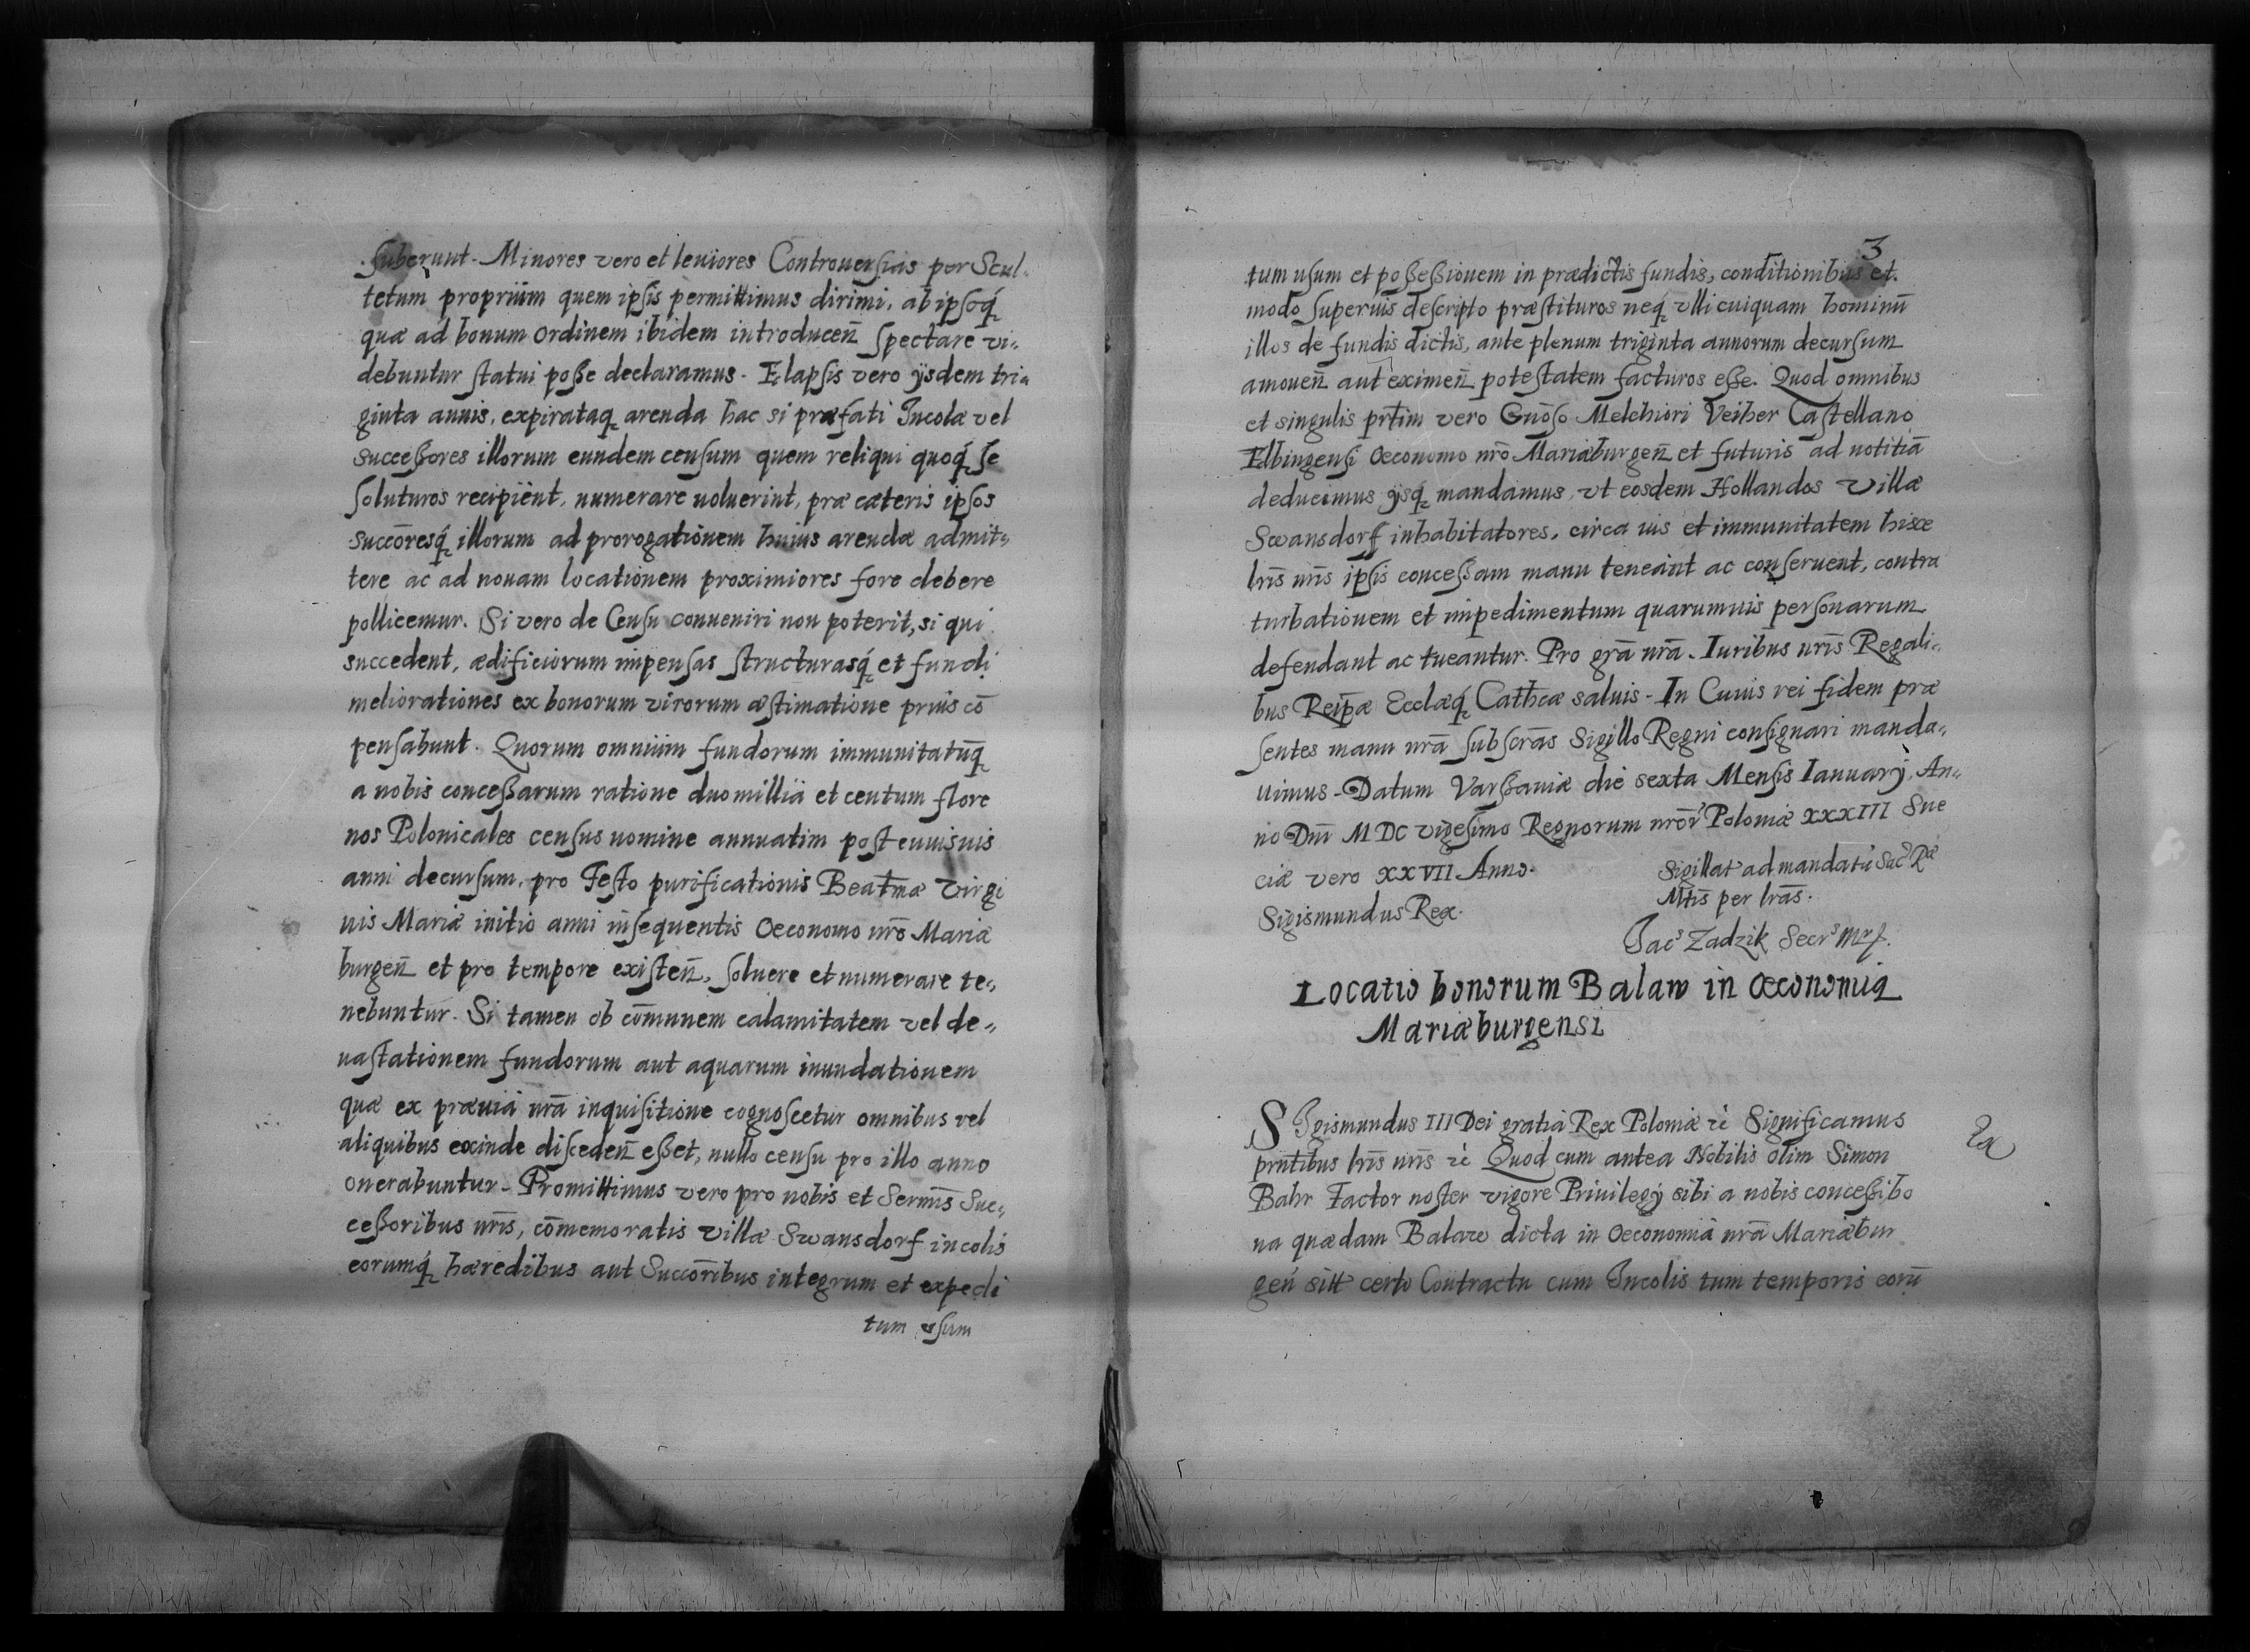 suberunt. Minores vero et leuiores Controuersias per Scul-
tetum proprium quem ipsis permittimus dirimi, ab ipsoq́
quæ ad bonum ordinem ibidem introducen̄ spectare vi-
debuntur statui posse declaramus. Elapsis vero ijsdem tri-
ginta annis, expirataq arenda hac si præfati Incolæ vel
successores illorum eundem censum quem reliqui quoq́ se
soluturos recipient, numerare uoluerint, præ cæteris ipsos
succōresq́ illorum ad prorogationem huius arendæ admit-
tere ac ad nouam locationem proximiores fore debere
pollicemur. Si vero de Censu conueniri non poterit, si qui
succedent, ædificiorum impensas structurasq́ et fundi
meliorationes ex bonorum virorum æstimatione prius cō
pensabunt. Quorum omnium fundorum immunitatūq
a nobis concessarum ratione duo millia et centum flore
nos Polonicales census nomine annuatim post euuisuis
anni decursum, pro Festo purificationis Beatmæ Virgi
nis Mariæ initio anni insequentis Oeconomo nrō Mariæ
burgen̄ et pro tempore existen̄, soluere et numerare te-
nebuntur. Si tamen ob cōmunem calamitatem vel de-
uastationem fundorum aut aquarum inundationem
quæ ex præuia nrā inquisitione cognoscetur omnibus vel
aliquibus exinde disceden̄ esset, nullo censu pro illo anno
onerabuntur. Promittimus vero pro nobis et Sermīs Suc-
cessoribus nrīs, cōmemoratis villæ Swansdorf incolis
eorumq́ hæredibus aut Succorībus integrum et expedi
tum usum
3
tum usum et possessionem in prædictis fundis, conditionibus et
modo superius descripto præstituros neq́ vlli cuiquam hominū
illos de fundis dictis, ante plenum triginta annorum decursum
amouen̄ aut eximen̄ potestatem facturos esse. Quod omnibus
et singulis prtīm vero Gnōso Melchiori Veiher Castellano
Elbingensi Oeconomo nrō Mariæburgen̄ et futuris ad notitiā
deducimus ijsq́ mandamus, vt eosdem Hollandos Villæ
Swansdorff inhabitatores, circa ius et immunitatem hisce
lrīs nrīs ipsis concessam manu teneant ac conseruent, contra
turbationem et impedimentum quarumuis personarum
defendant ac tueantur. Pro grā nrā. Iuribus nrīs Regali-
bus Reipæ Ecclæq́ Cathcæ saluis. In Cuius rei fidem præ
sentes manu nrā subscrās Sigillo Regni consignari manda-
uimus. Datum Varsauiæ die sexta Mensis Ianuarij. An-
no Dnī MDC vigesimo Regnorum nrōr Poloniæ XXXIII Sue
ciæ vero XXVII Anno.
Sigismundus Rex.
Sigillat ad mandatū Sac Ræ
Mtīs per lrās.
Jacs Zadzik Secrs
Locatio bonorum Balaw in Oeconomia
Mariæburgensi
SIgismundus III Dei gratia Rex Poloniæ rc Significamus
prntibus lrīs nrīs rc Quod cum antea Nobilis olim Simon
Bahr Factor noster vigore Priuilegij sibi a nobis concessi bo
na quædam Balaw dicta in Oeconomia nrā Mariæbur
gen certo Contractu cum Incolis tum temporis eorū